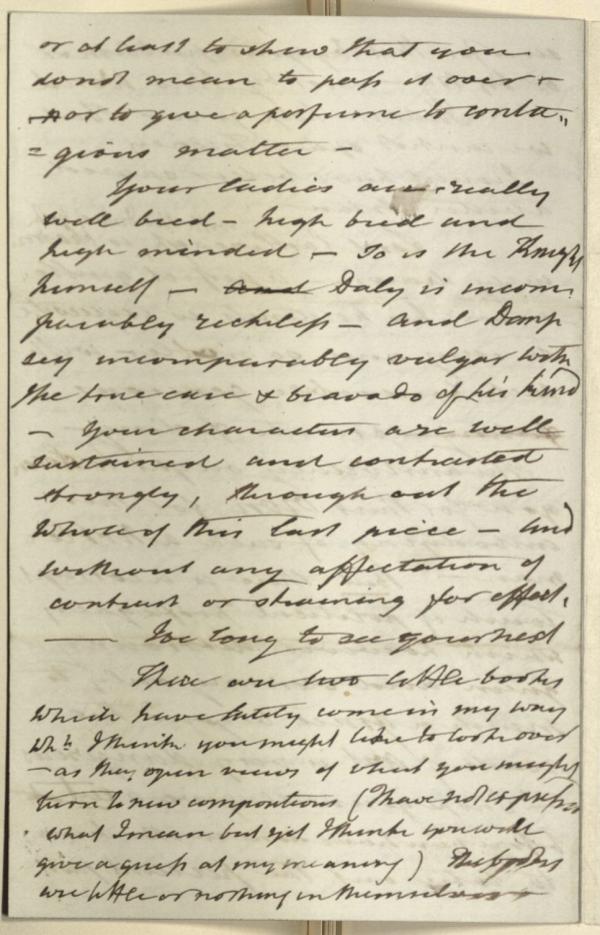 or at least to shew that you
do not mean to pass it over -
- or to give a perfume to conta-
= gious matter -
Your ladies are really
well bred - high bred and
high minded - So is the Knight
himself - and Daly is incom
parably reckless - and Demp
sey incomparably vulgar with
the true care & bravado of his kind
- Your characters are well
sustained and contrasted
strongly, through out the
whole of this last piece - and
without any affectation of
contrast or straining for effect.
—— I so long to see your next
There are two little books
which have lately come in my way
whh I think you might like to look over
- as they open views of what you might
turn to new compositions (I have not express
what I mean but yet I think you will
give a guess at my meaning) The books
are little or nothing in themselves